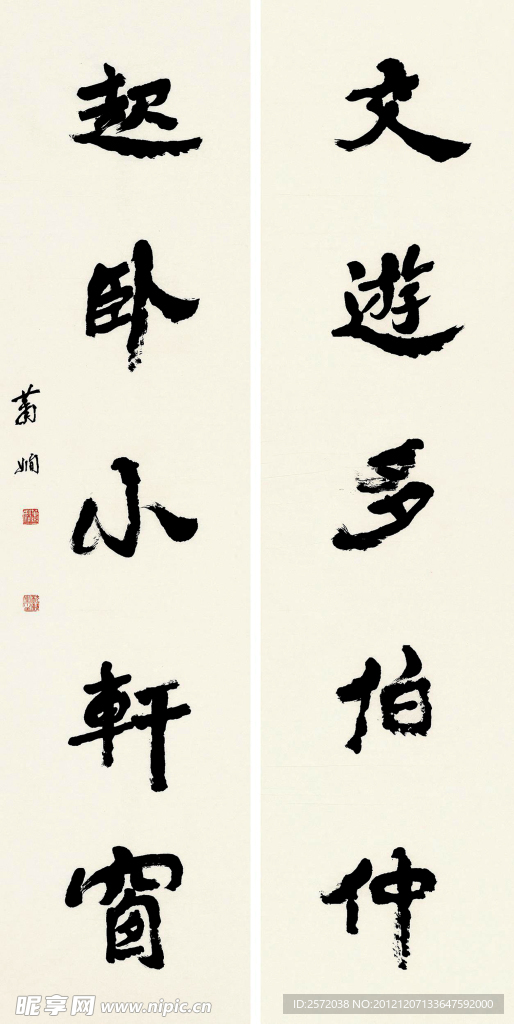 交遊多伯仲
起卧小軒窗
蕭嫻
昵享网 www.nipic.cn
ID:2572038 NO:20121207133647592000